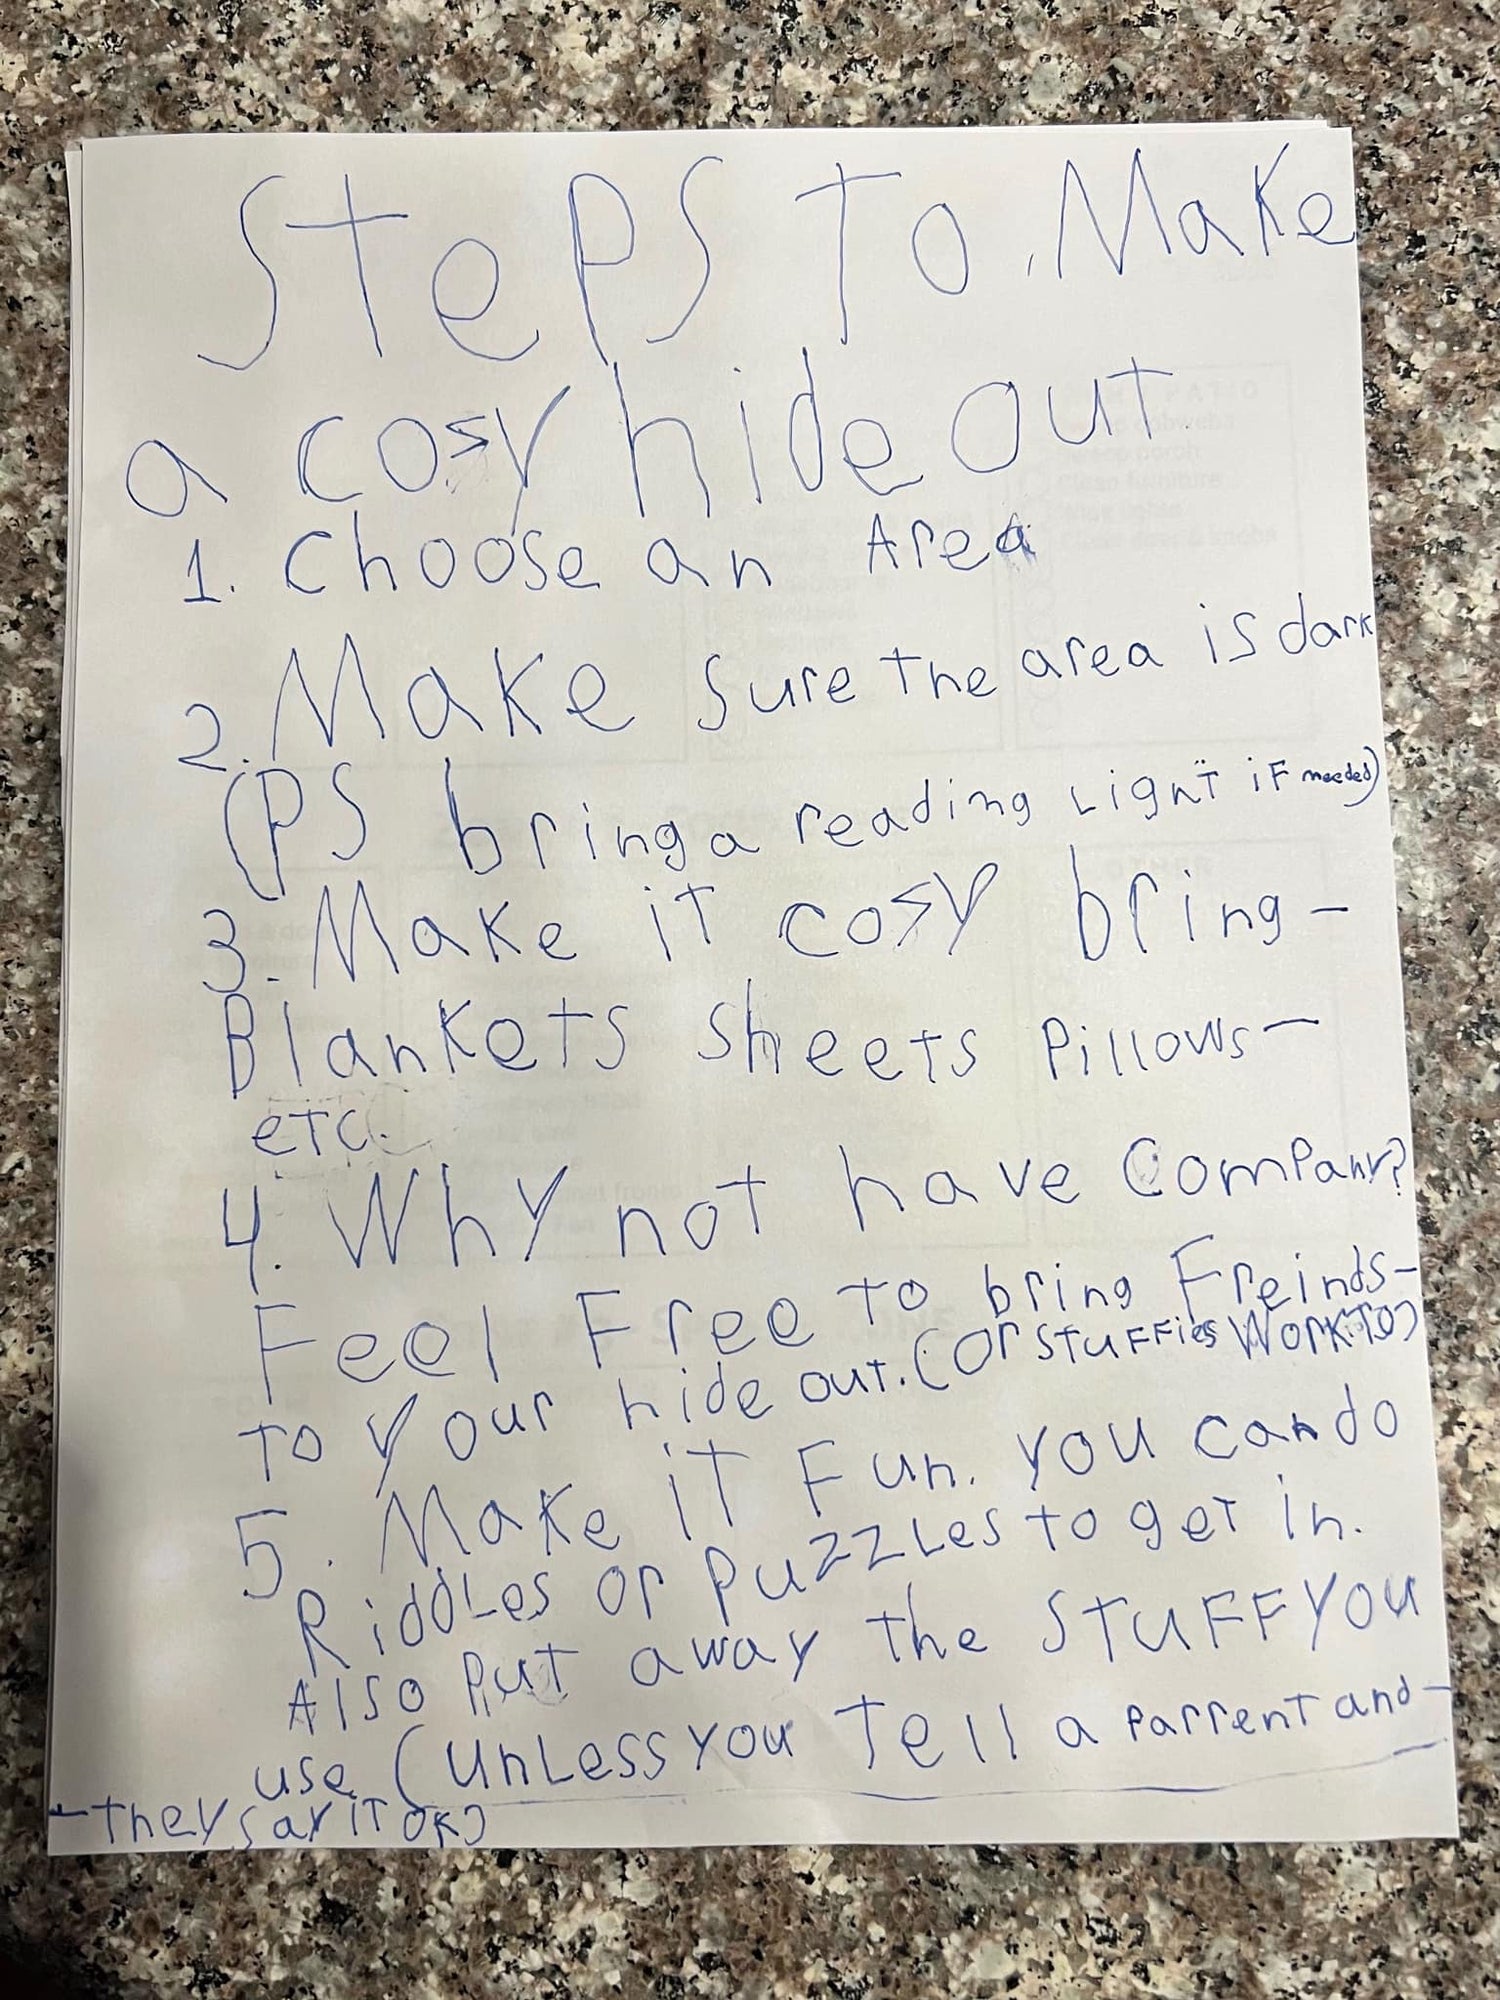 Steps To Make
a cosy hide out
1. Choose an Area
2. Make sure the area is dark
(PS bring a reading Light iF needed)
3. Make it cosy bring-
Blankets sheets Pillows-
etc.
4. Why not have Company?
Feel Free to bring Freinds-
to your hide out. (Or stuffies Work TO)
5. Make it Fun. You can do
Riddles or Puzzles to get in.
Also Put away the STUFF You
use (unless you Tell a parrent and-
-they say iT OK)